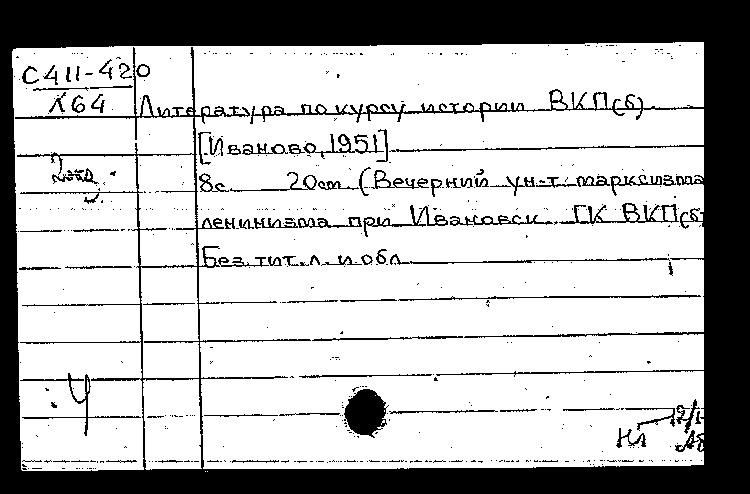 С411-420
Л64
Литература по курсу истории ВКП(б).
[Иваново, 1951]
8с. 20cm. (Вечерний ун-т марксизма
ленинизма при Ивановск. ГК ВКП(б)
Без тит. л. и обл.
Ч
Нл 12/